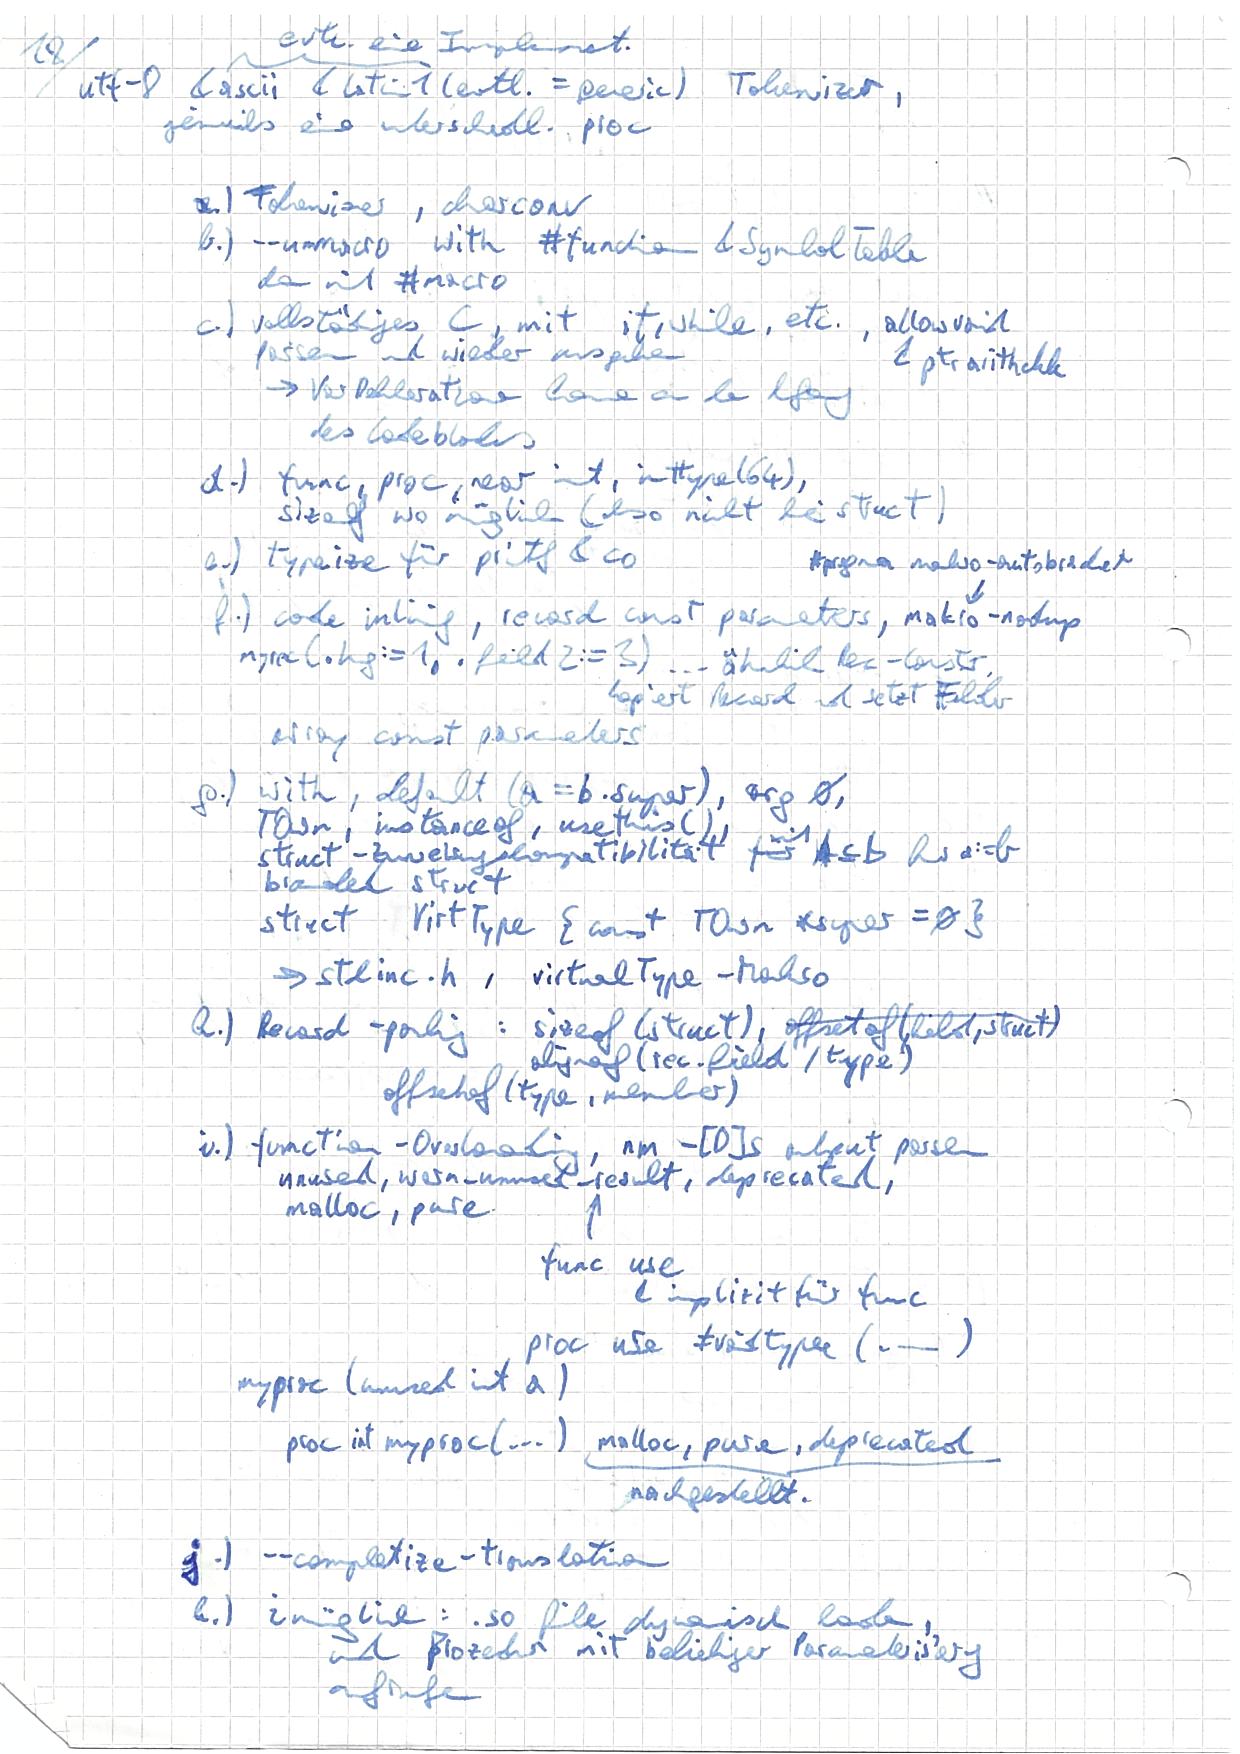 18/
evtl. eine Implement.
utf-8 & ascii & latin1 (evtl. = generic) Tokenizer,
jeweils eine unterschiedl. proc
a.) Tokenizer, charconv
b.) --unmacro with #function & SymbolTable
dann mit #macro
c.) vollständiges C, mit if, while, etc., allowvoid
parsen und wieder ausgeben & ptrarithchk
→ Var Deklarationen
des Codeblocks
d.) func, proc, near int, inttype(64),
sizeof wo möglich (also nicht bei struct)
e.) typeize für printf & co
#pragma makro-autobracket
f.) code inling, record const parameters, makro-nodup
myrec(.hg:=1, .field2:=3) ... ähnlich Rec-Constr,
kopiert Record und setzt Felder
array const parameters
g.) with, default (a=b.super), org 0,
TOwn, instanceof, usethis(),
struct-Zuweisungskompatibilität mit
branded struct
struct VirtType { const TOwn *super = 0 }
→ stdinc.h, virtualType-Makro
h.) Record-porting : sizeof (struct), offsetof(field, struct)
alignof (rec.field / type)
offsetof (type, member)
i.) function-Overloading, nm -[D]S output parsen
unused, warn-unused-result, deprecated,
malloc, pure
↑
func use
& implizit für func
proc use
myproc (unused int a)
proc int myproc(...) malloc, pure, deprecated
nachgestellt.
j.) --completize-translation
k.) .so file dynamisch laden,
und Prozedur mit beliebiger Parametrisierung
aufrufen